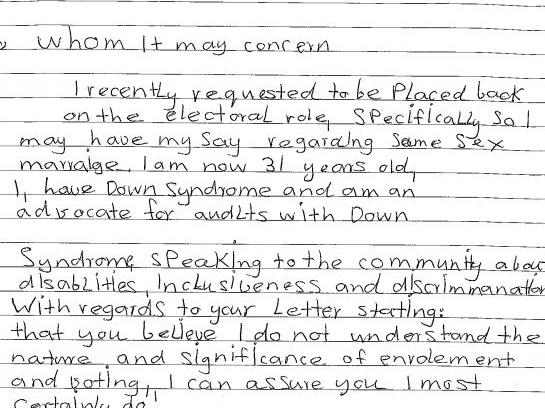 whom It may concern
I recently requested to be Placed back
on the electoral role, SPecifically So I
may have my Say regarding Same Sex
marraige. I am now 31 years old,
I, have Down Syndrome and am an
advocate for audlts with Down
Syndrome, SPeaking to the community abou
disablities, Inclusiveness and discrimmanation
With regards to your Letter stating:
that you believe I do not understand the
nature and significance of enrolement
and voting, I can assure you I most
certainly do!